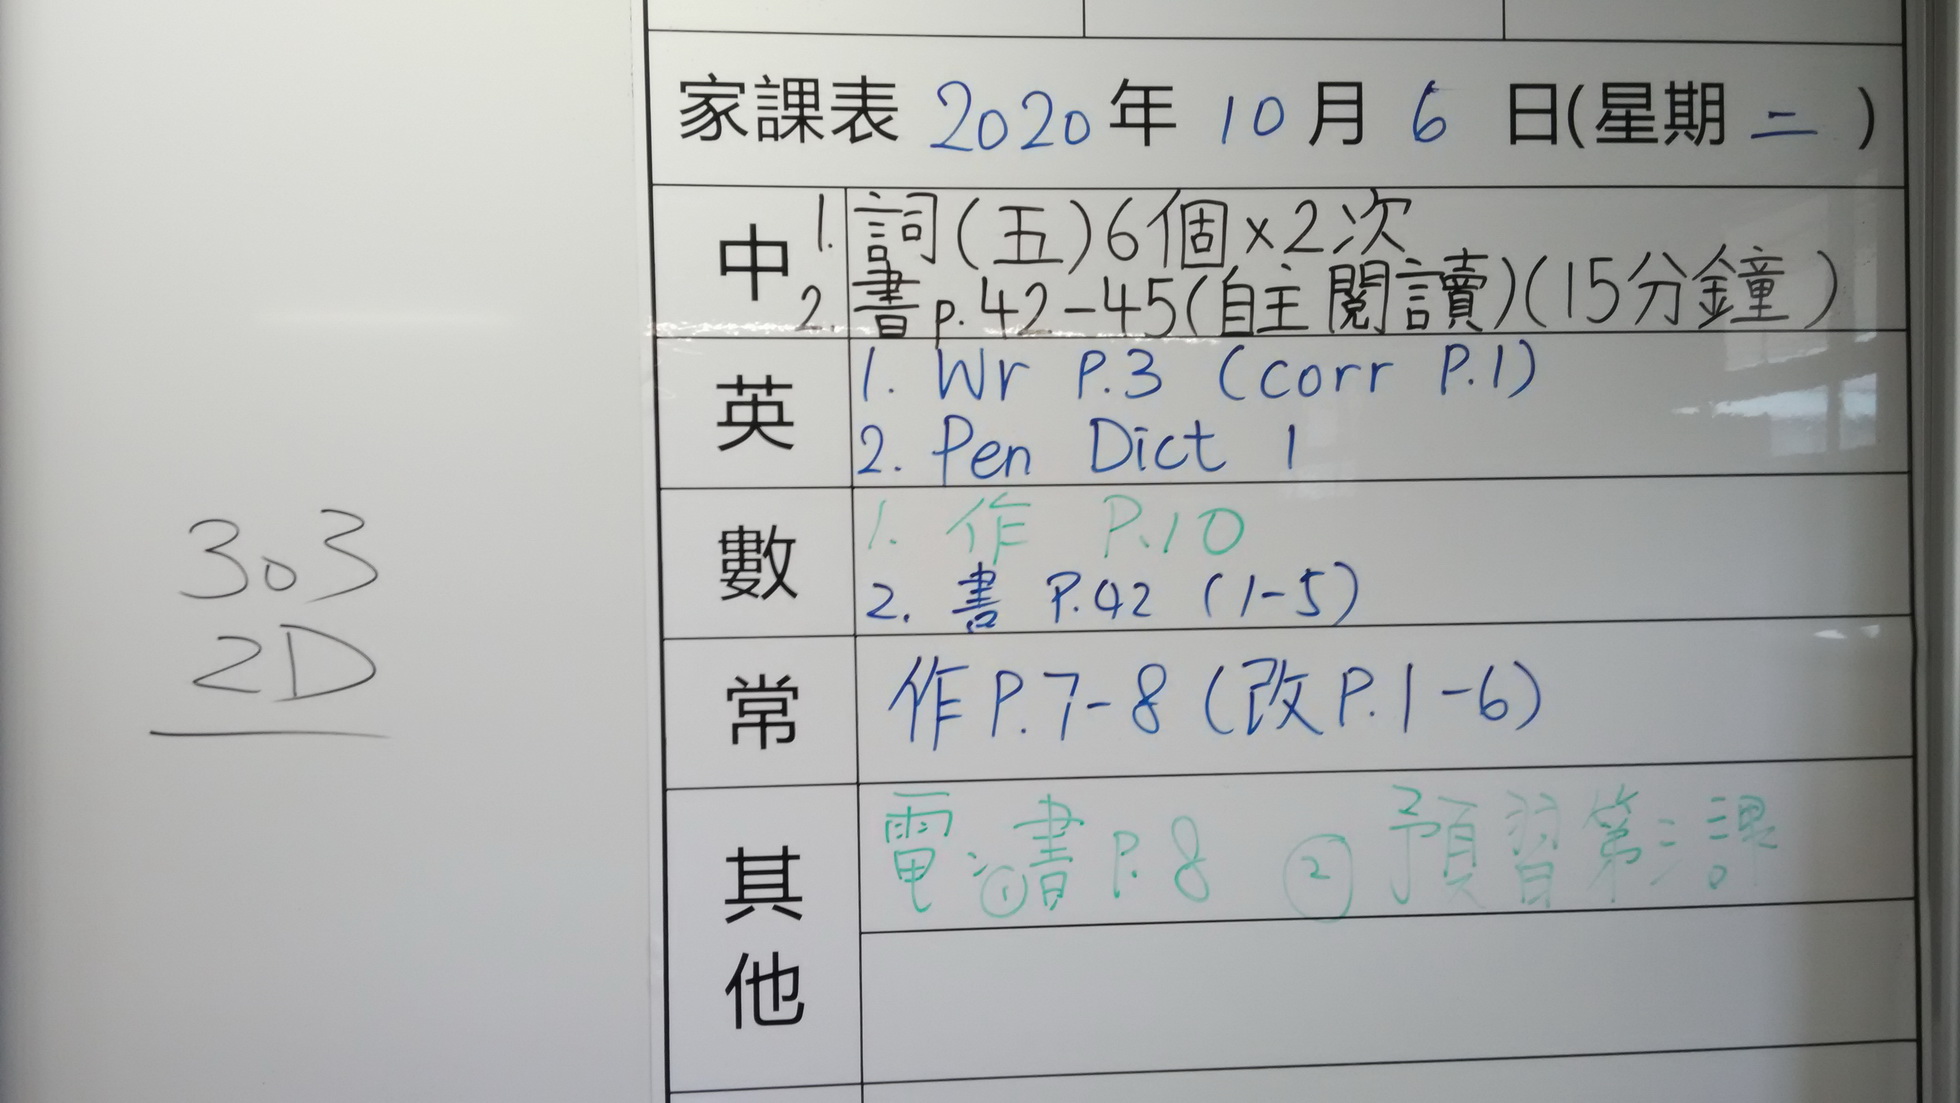 家課表 2020年 10月 6日(星期二)
中
1. 詞(五)6個×2次
2. 書p.42-45(自主閱讀)(15分鐘)
英
1. Wr P.3 (corr P.1)
2. Pen Dict 1
數
1. 作 P.10
2. 書 P.42 (1-5)
常
作P.7-8(改P.1-6)
其他
電:①書P.8 ②預習第二課
303
2D